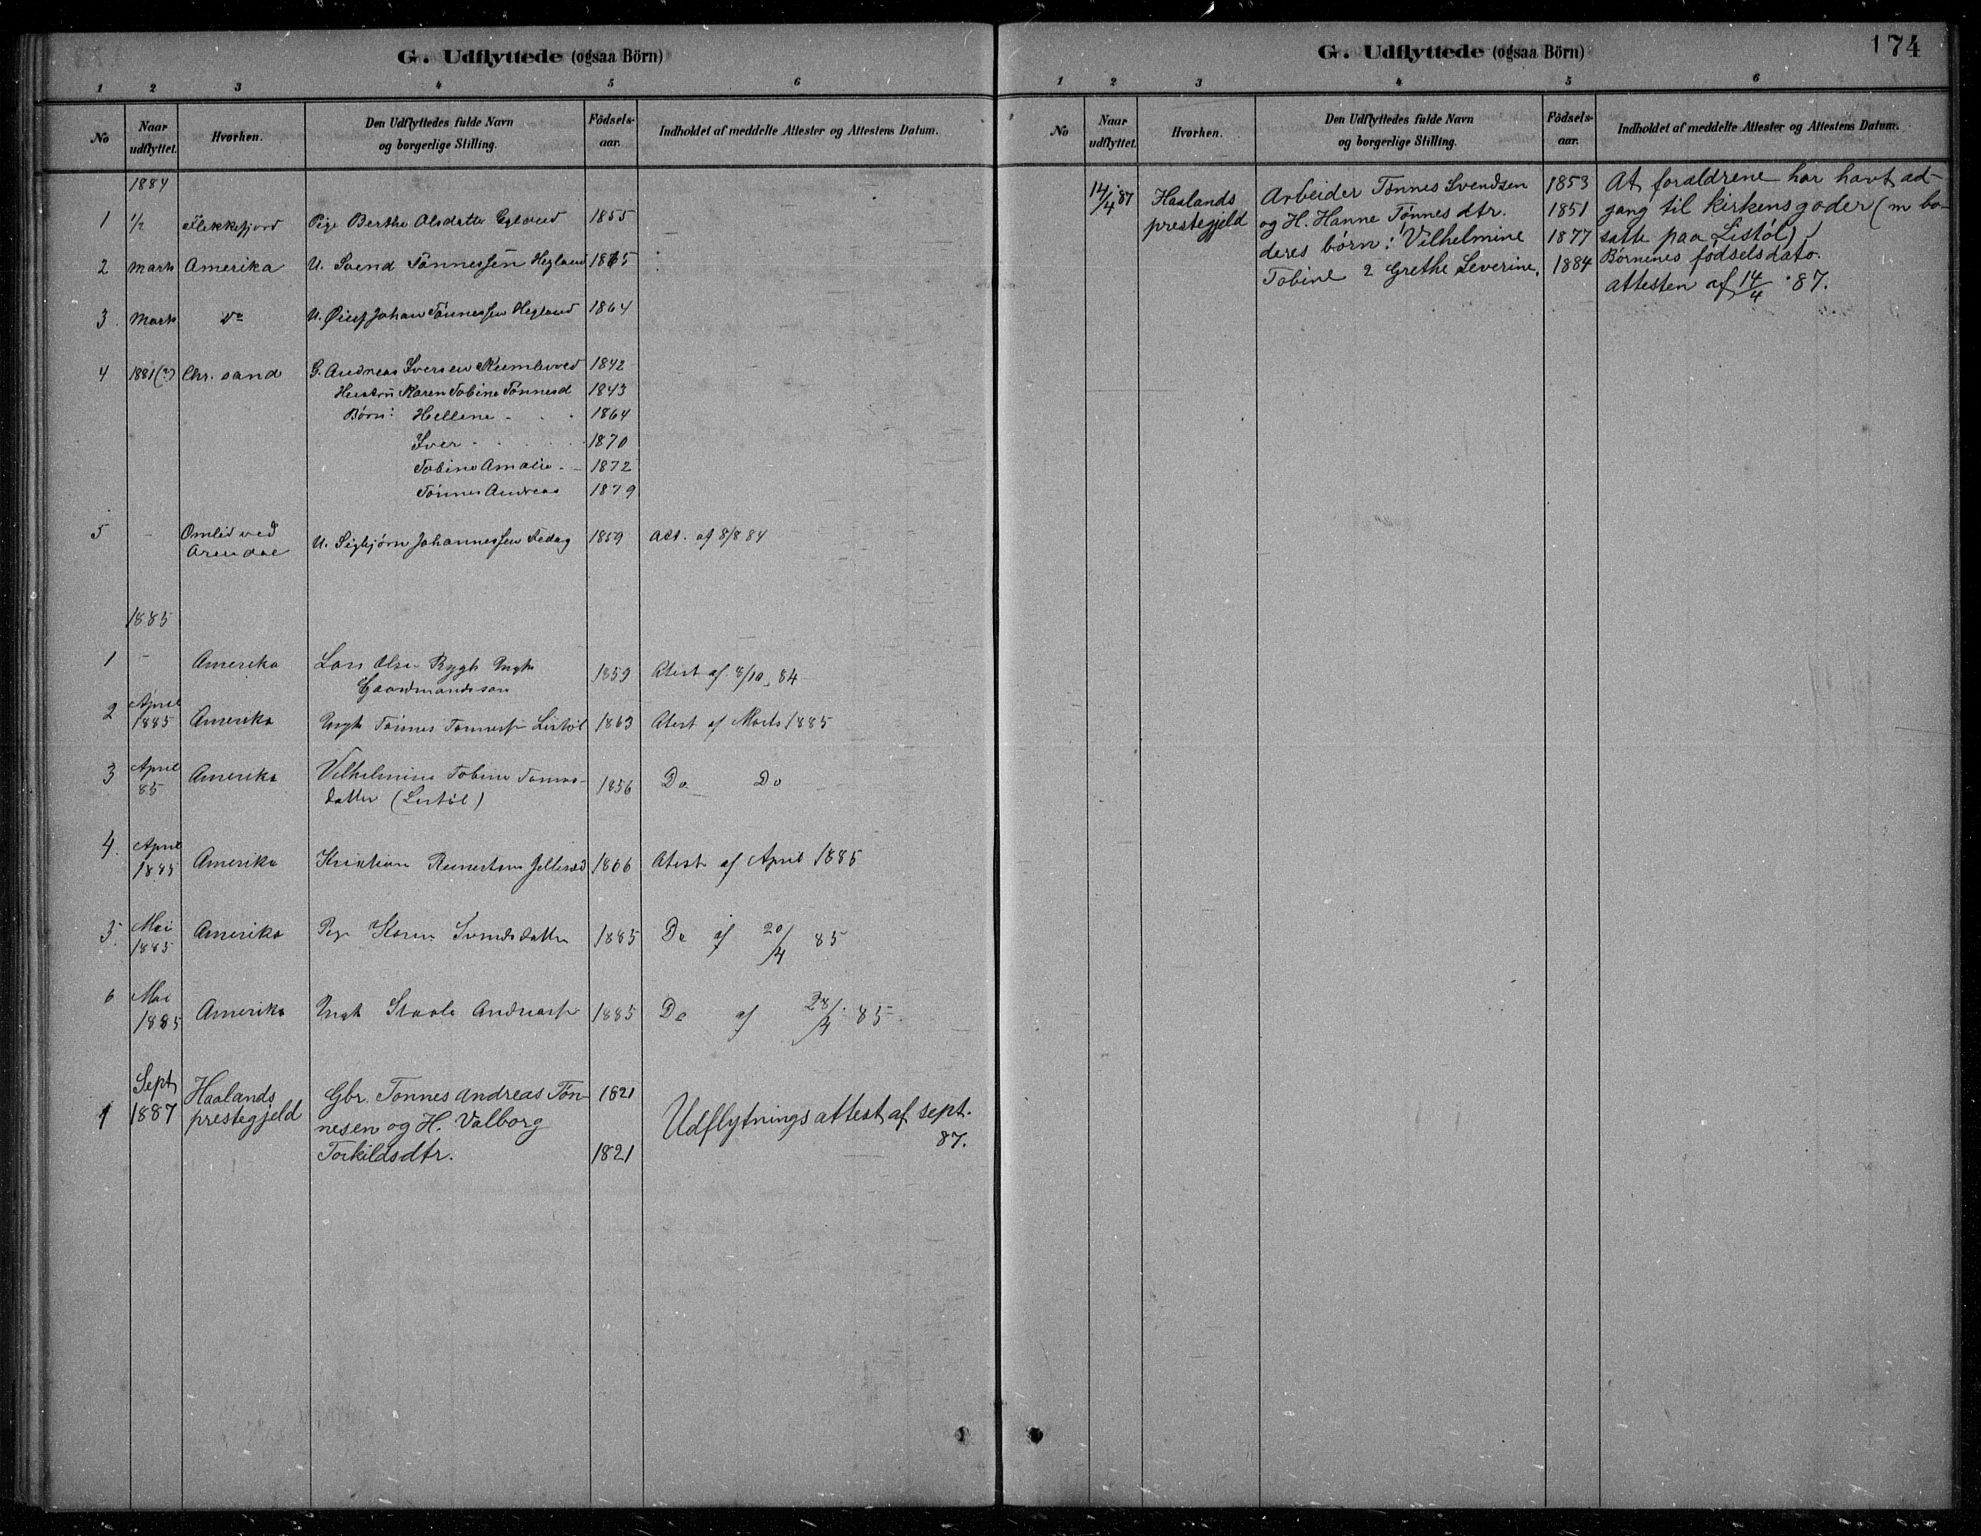 G. Udflyttede (ogsaa Börn)
1 2 3 4 5 6
No Naar udflyttet. Hvorhen. Den Udflyttedes fulde Navn og borgerlige Stilling. Födsels-aar. Indholdet af meddelte Attester og Attestens Datum.
1884
1 1/2 Flekkefjord Pige Berthe Olsdatter 1855
2 Marts Amerika U. Svend Tönnessen Hegland 1865
3. Marts do U. Johan Tönnessen Hegland 1864
4 1881(?) Chr.sand G. Andreas Iversen 1842
Hustru Karen Tobine Tönnesd 1843
Børn: Hellene 1864
Iver 1870
Tobine Amalie 1872
Tönnes Andreas 1879
5 - Omlid ved
Arendal U. Sigbjørn Johannessen Fedog 1859 Att. af 8/8 84
1885
1 - Amerika Lars Olsen Rygh Ungk
Gaardmandssøn 1859 Atest af 8/10 84
2 April
1885 Amerika Ungk Tönnes Tonness Listöl 1863 Atest af Marts 1885
3 April
85 Amerika Vilhelmine Tobine Tonnes-
datter (Listöl) 1856 Do Do
4. April
1885 Amerika Kristian Reinertsen 1866 Atest af April 1885
5. Mai
1885 Amerika Pige Karen Svendsdatter 1885 Do af 20/4 85
6 Mai
1885 Amerika Ungk Staale Andreass 1885 Do af 28/4 85.
1 Sept
1887 Haalands
prestegjeld Gbr. Tonnes Andreas Tøn- 1821
nesen og H. Valborg
Torkildsdtr. 1821
Udflytningsattest af sept.
87.
G. Udflyttede (ogsaa Börn)
174
1 2 3 4 5 6
No Naar udflyttet. Hvorhen. Den Udflyttedes fulde Navn og borgerlige Stilling. Födsels-aar. Indholdet af meddelte Attester og Attestens Datum.
14/4 87 Haalands
prestegjeld
Arbeider Tønnes Svendsen 1853 At forældrene har havt ad-
og H. Hanne Tønnesdtr. 1851 gang til kirkens goder (m bo-
deres børn: 1 Vilhelmine 1877 satte paa Listøl)
Tobine 2 Grethe Severine. 1884 Børnenes fødselsdato.
attesten af 14/4 87.